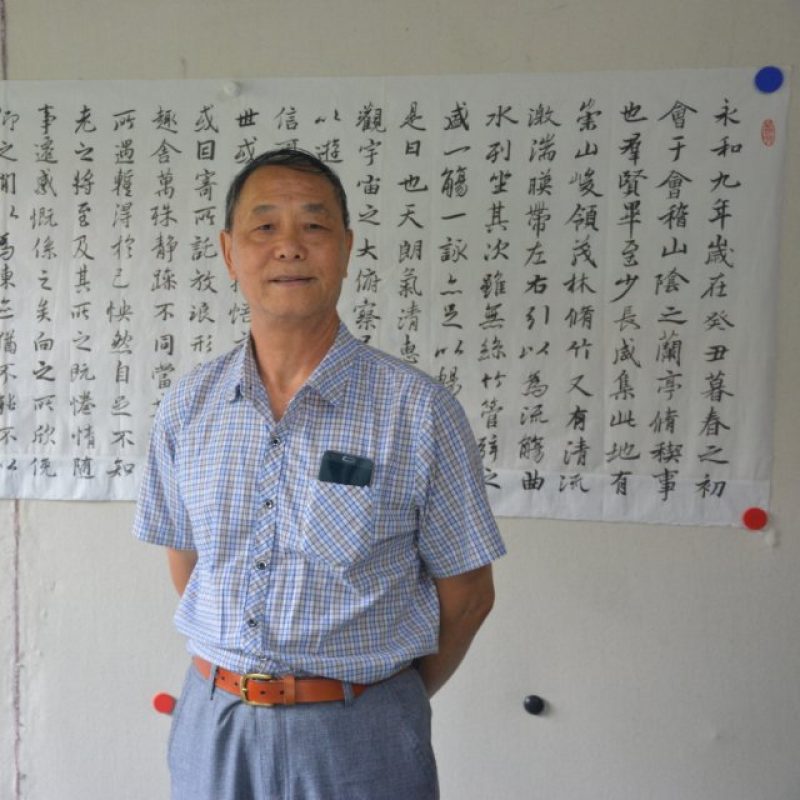 永和九年歲在癸丑暮春之初
會于會稽山陰之蘭亭脩稧事
也羣賢畢至少長咸集此地有
崇山峻領茂林脩竹又有清流
激湍暎帶左右引以為流觴曲
水列坐其次雖無絲竹管弦之
盛一觴一詠亦足以暢
是日也天朗氣清惠
觀宇宙之大俯察
以遊
信可
世或悟
或因寄所託放浪形
趣舍萬殊靜躁不同當
所遇暫得於己怏然自足不知
老之將至及其所之既惓情隨
事遷感慨係之矣向之所欣俛
仰之間以為陳迹猶不能不以